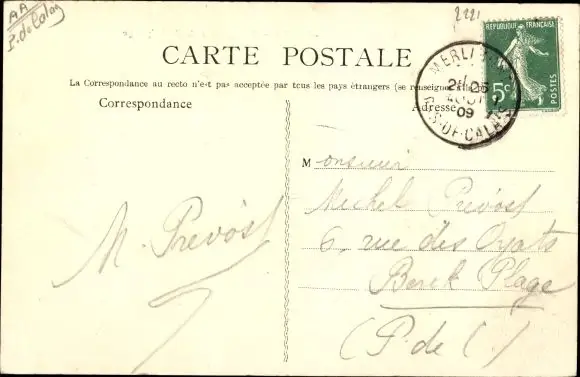 AA
P. de Calais
2221
RÉPUBLIQUE FRANÇAISE
5c
POSTES
CARTE POSTALE
La Correspondance au recto n'est pas acceptée par tous les pays étrangers (se renseigner
Correspondance
Adresse
09
PAS-DE-CALAIS
Monsieur
Michel Prévost
6, rue des Oyats
Berck Plage
(P. de C.)
M. Prévost